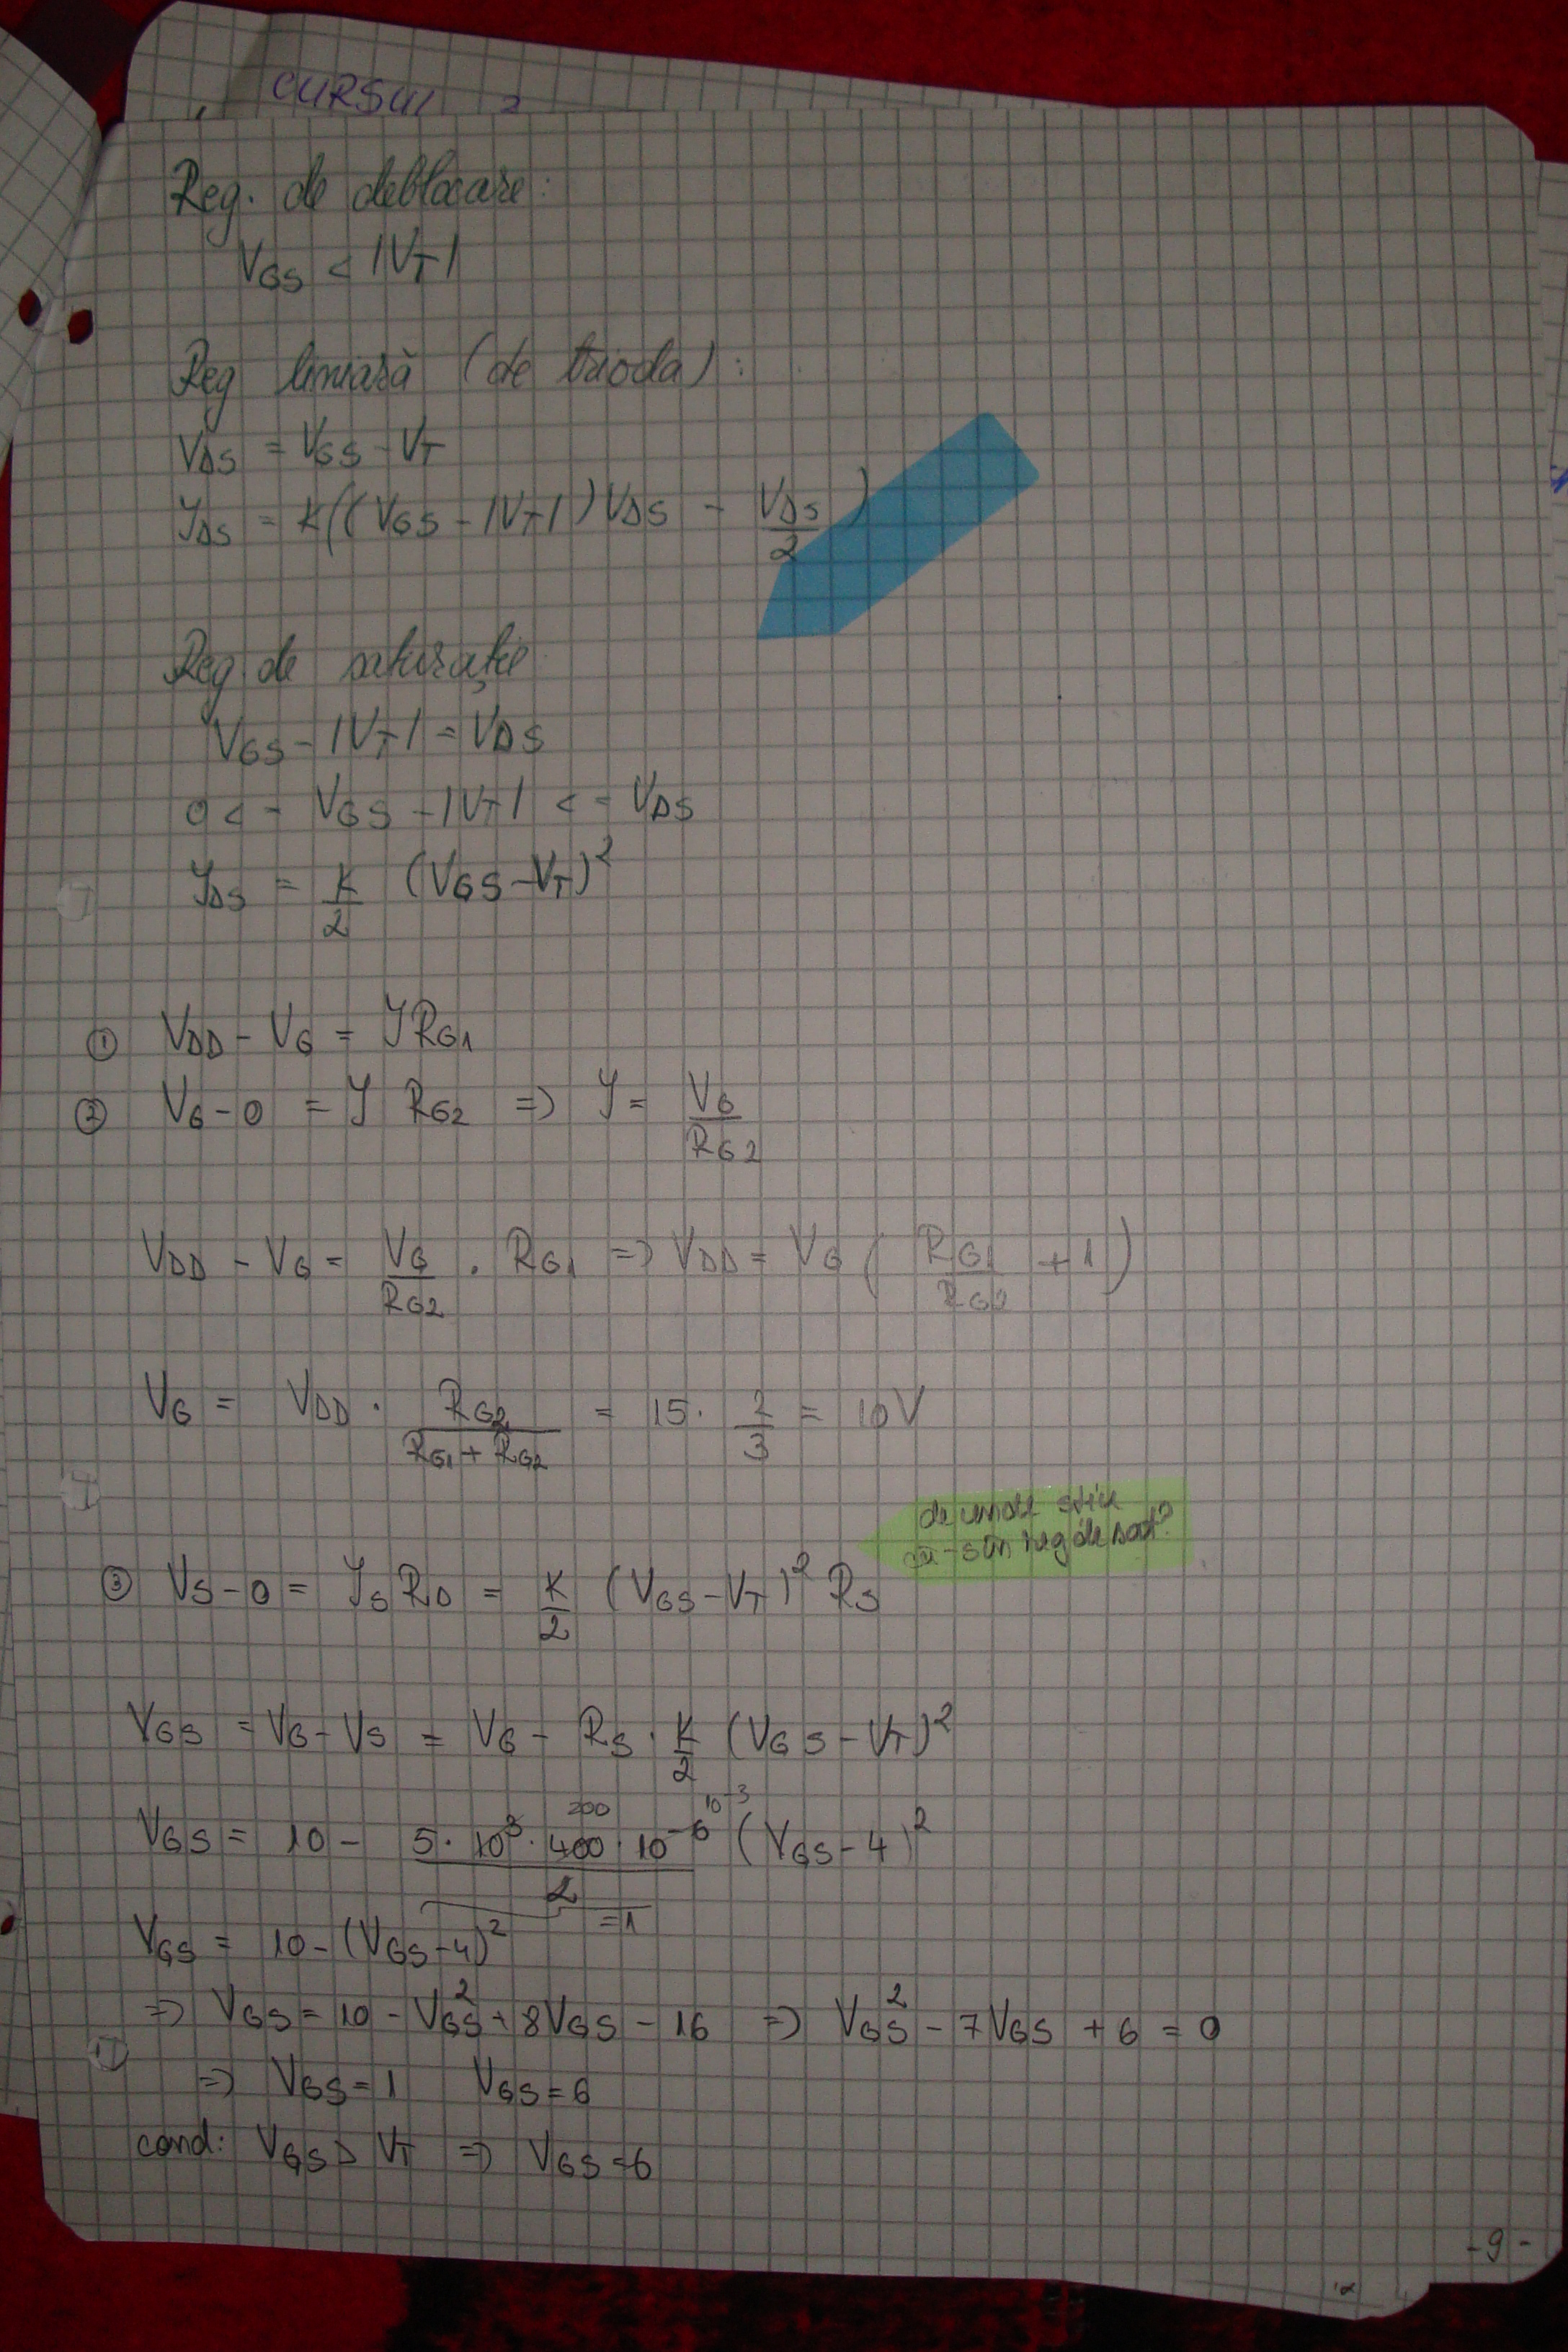 CURSUL 2
Reg. de deblocare:
V_GS < |V_T|
Reg liniară (de trioda):
V_DS = V_GS - V_T
I_DS = K((V_GS - |V_T|) V_DS - V_DS/2)
Reg. de saturație
V_GS - |V_T| = V_DS
0 < - V_GS - |V_T| < = V_DS
I_DS = K/2 (V_GS - V_T)²
① V_DD - V_G = I R_G1
② V_G - 0 = I R_G2 => I = V_G/R_G2
V_DD - V_G = V_G/R_G2 · R_G1 => V_DD = V_G (R_G1/R_G2 + 1)
V_G = V_DD · R_G2/(R_G1 + R_G2) = 15 · 2/3 = 10V
de unde știu
că-s în reg de sat?
③ V_S - 0 = I_S R_D = K/2 (V_GS - V_T)² R_S
V_GS = V_G - V_S = V_G - R_S · K/2 (V_GS - V_T)²
200 10^-3
V_GS = 10 - 5 · 10³ · 400 · 10^-6 / 2 (V_GS - 4)²
= 1
V_GS = 10 - (V_GS - 4)²
=> V_GS = 10 - V_GS² + 8V_GS - 16 => V_GS² - 7V_GS + 6 = 0
=> V_GS = 1 V_GS = 6
cond: V_GS > V_T => V_GS = 6
- 9 -